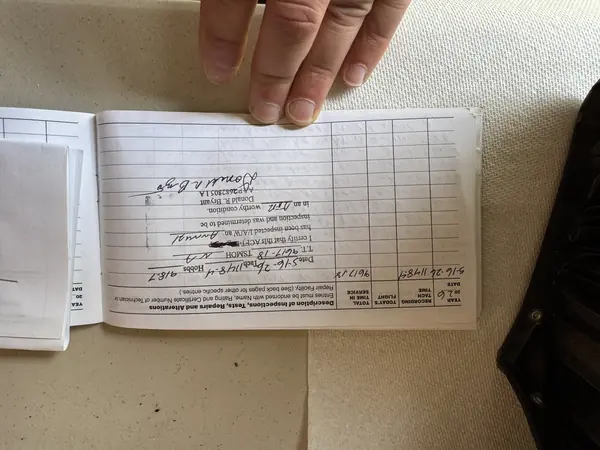 YEAR
20 26
DATE
RECORDING
TACH
TIME
TODAY'S
FLIGHT
TOTAL
TIME IN
SERVICE
Description of Inspections, Tests, Repairs and Alterations
Entries must be endorsed with Name, Rating and Certificate Number of Technician or
Repair Facility. (See back pages for other specific entries.)
5-16-26 11484 9617.18
Date 5-16-26 Tach 11484 Hobbs 918.7
T.T. 9617.18 TSMOH NA
I certify that this ACFT
has been inspected I/A/W an Annual
inspection and was determined to be
in an worthy condition.
Donald R. Bryant
AP26828051A
YEAR
20
DATE